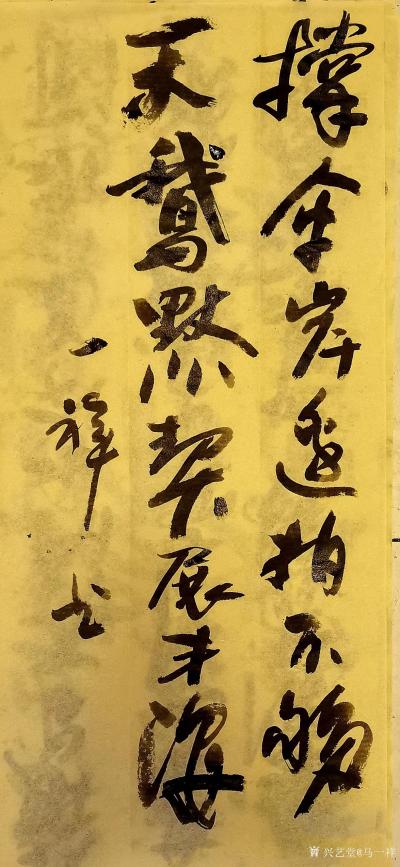 撑伞岸边拍不够
天鹅默契展才海
一祥书
兴艺堂@马一祥